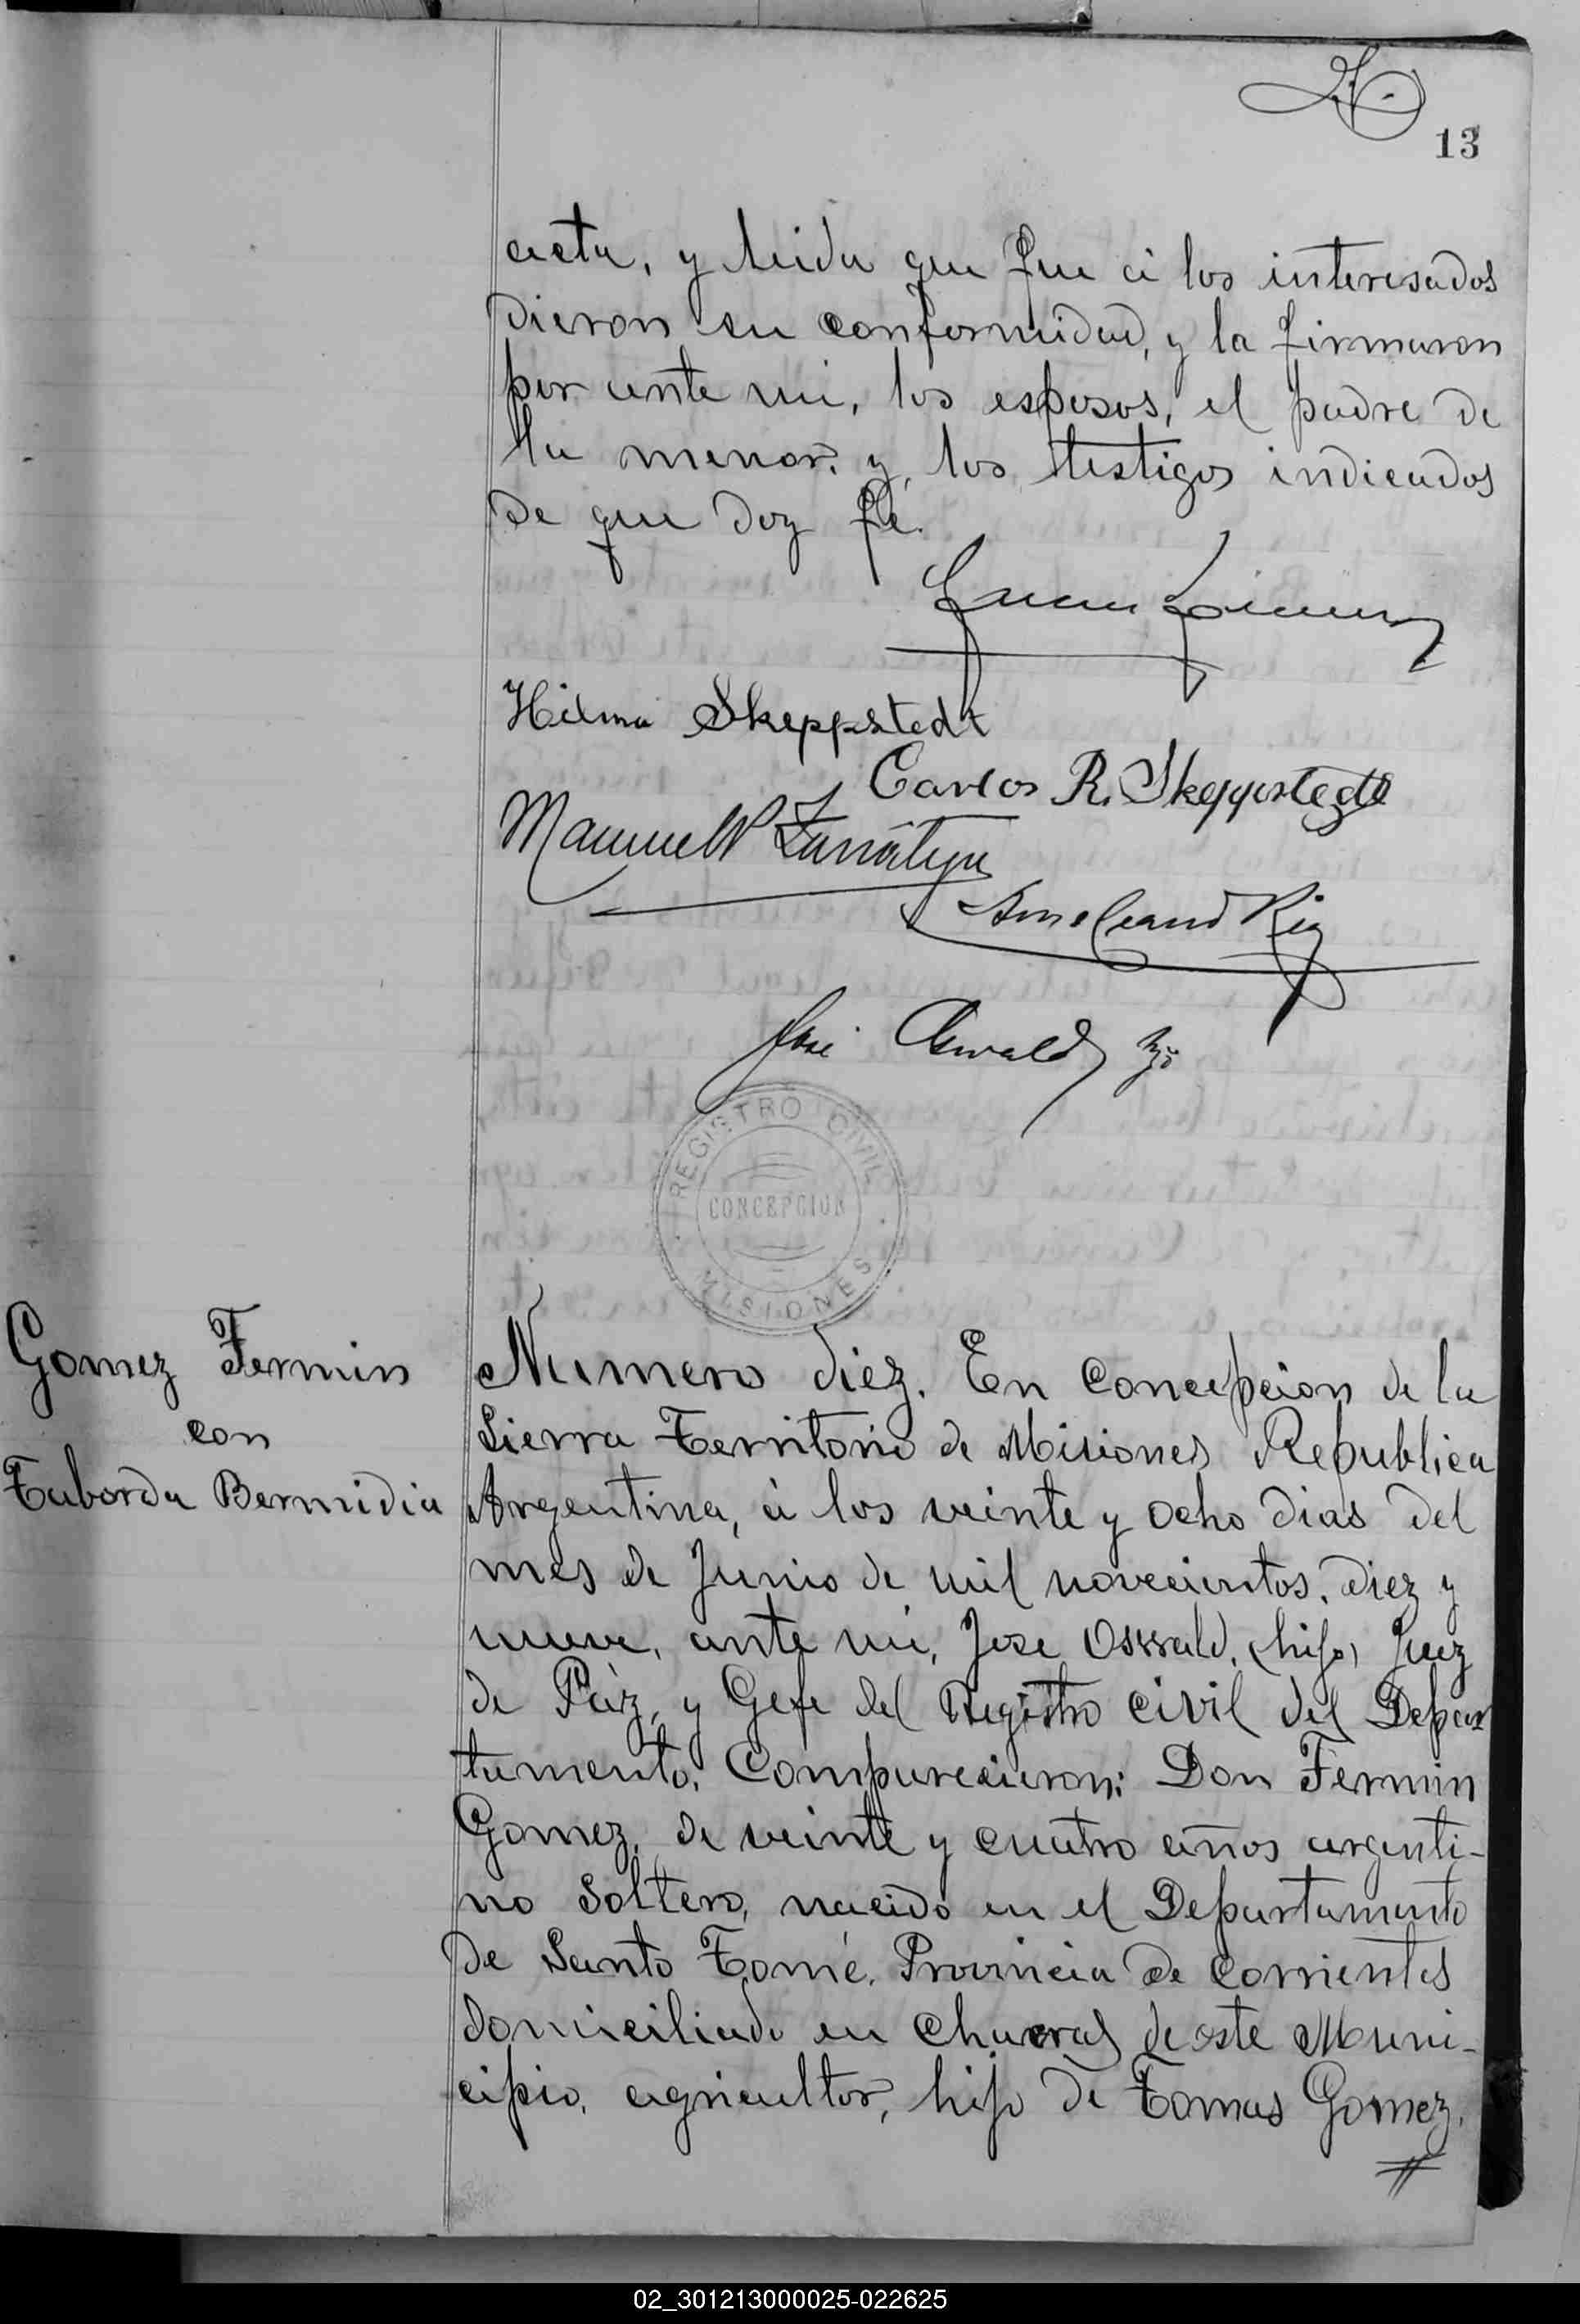 13
acta, y leida que fue á los interesados
dieron su conformidad, y la firmaron
por ante mi, los esposos, el padre de
la menor, y, los testigos indicados
de que doy fé.
Hilma Skeppstedt
Carlos R. Skeppstedt
Manuel
José Oswald hijo
REGISTRO CIVIL
CONCEPCION
MISIONES
Gomez Fermin
con
Taborda Bermidia
Numero diez. En Concepcion de la
Sierra Territorio de Misiones Republica
Argentina, á los veinte y ocho dias del
mes de Junio de mil novecientos, diez y
nueve, ante mi, Jose Oswald, (hijo) Juez
de Páz, y Gefe del Registro Civil del Depar
tamento, Comparecieron: Don Fermin
Gomez, de veinte y cuatro años argenti-
no soltero, nacido en el Departamento
de Santo Tomé, Provincia de Corrientes
domiciliado en Chacras de este Muni-
cipio, agricultor, hijo de Tomas Gomez,
02_301213000025-022625